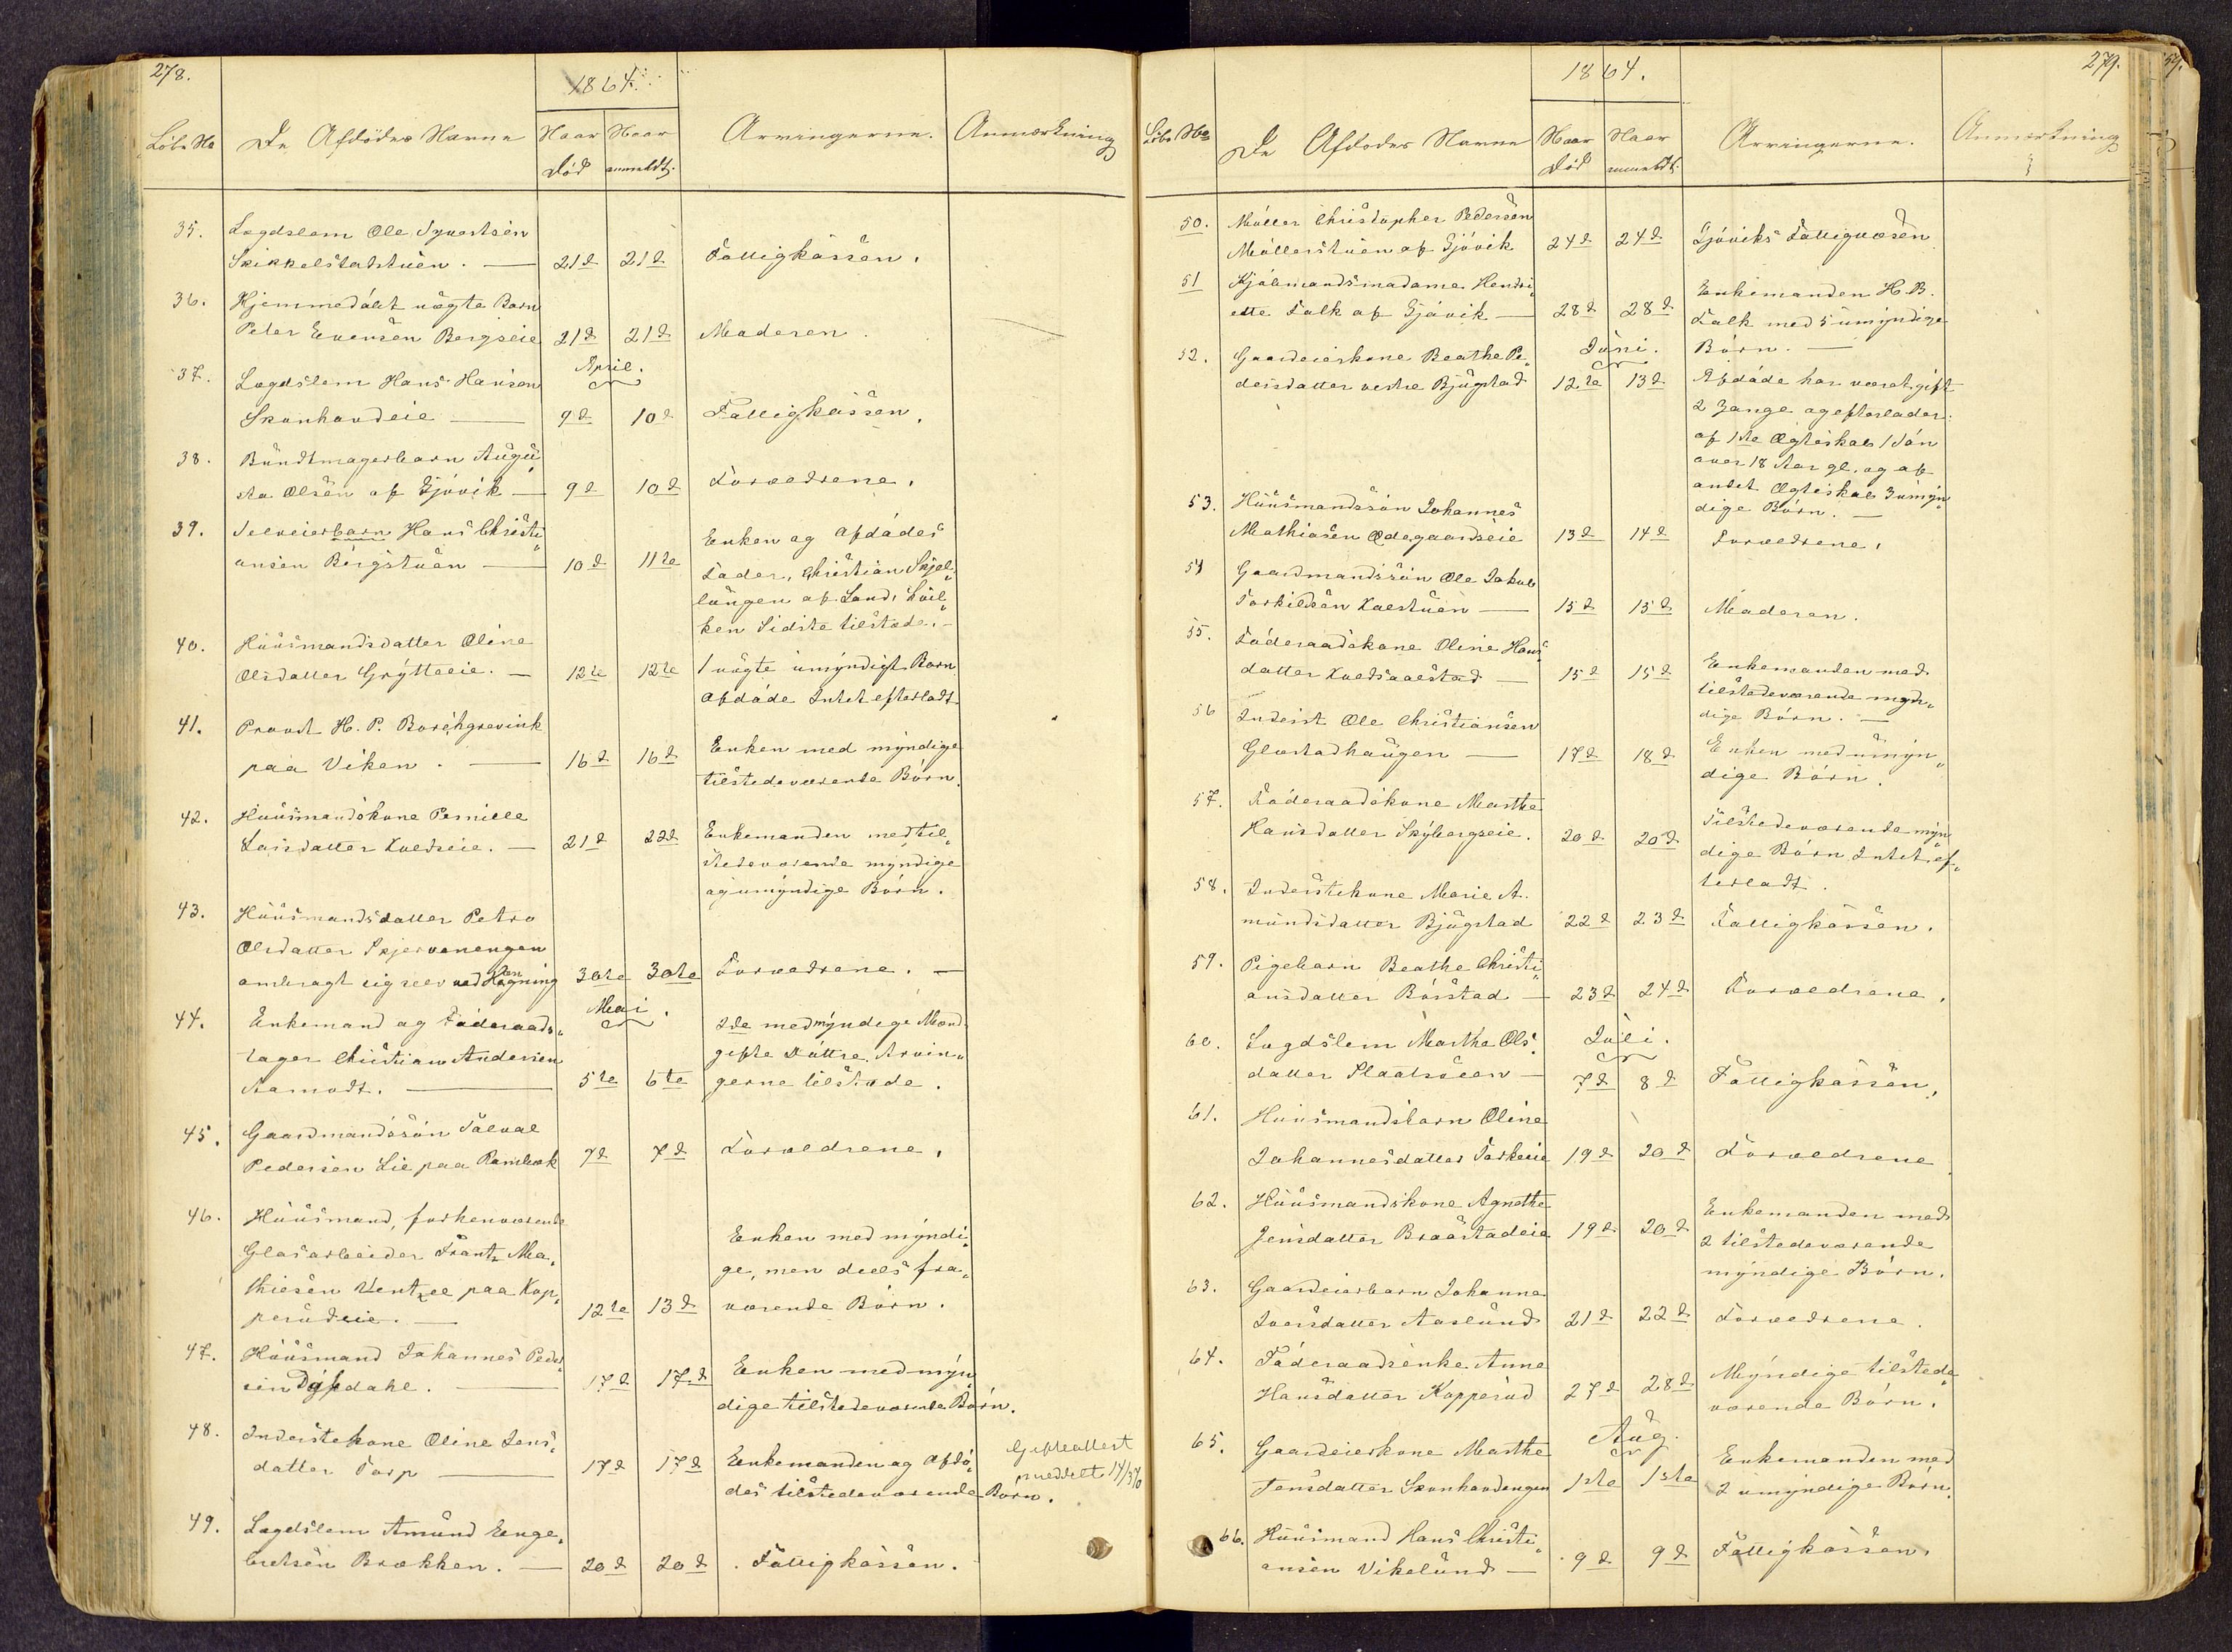 278.
1864.
Löbe No De Afdödes Navne Naar Död Naar anmeldt. Arvingerne. Anmærkning
35. Lægdslem Ole Syvertsen
Skikkelstadstuen. — 21d 21d Fattigkassen.
36. Hjemmedöbt uægte Barn
Peter Evensen Bergseie 21d 21d Moderen.
April.
37. Lægdslem Hans Hansen
Skonhovdeie — 9d 10d Fattigkassen.
38. Bundtmagerbarn Augu„
sta Olsen af Gjövik — 9d 10d Forældrene.
39. Selveierbarn Hans Christi„
ansen Bergstuen — 10d 11te Enken og Afdödes
Fader, Christian Skjel„
lungen af Land, hvil„
ken Sidste tilstede. —
40. Huusmandsdatter Oline
Olsdatter Grytteeie. — 12te 12te 1 uægte umyndigt Barn
Afdöde Intet efterladt.
41. Provst H. P. Borchgrevink
paa Viken. — 16d 16d Enken med myndige
tilstedeværende Börn.
42. Huusmandskone Pernille
Larsdatter Kvedseie. — 21d 22d Enkemanden med til„
stedeværende myndige
og umyndige Börn.
43. Huusmandsdatter Petro
Olsdatter Skjervenengen
ombragt sig selv ved Hængning 30te 30te Forældrene. —
Mai.
44. Enkemand og Föderaads„
tager Christian Andersen
Aamodt. — 5te 6te 2de med myndige Mænd
gifte Döttre. Arvin„
gerne tilstede.
45. Gaardmandssön Tolval
Pedersen Lie paa Rambæk 7d 7d Forældrene.
46. Huusmand, forhenværende
Glasarbeider Frantz Ma„
thiesen Wentzel paa Kop„
perudeie. — 12te 13d Enken med myndi„
ge, men deels fra„
værende Börn.
47. Huusmand Johannes Peder„
sen Dyhsdahl. — 17d 17d Enken med myn„
dige tilstedeværende Börn.
48. Inderstekone Oline Jens„
datter Torp — 17d 17d Enkemanden og Afdö„
des tilstedeværende Barn.
Gifteattest
meddelt 14/3 70
49. Lægdslem Amund Enge„
bretsen Brækken. — 20d 20d Fattigkassen.
279.
1864.
Löbe No De Afdödes Navne Naar Död Naar anmeldt. Arvingerne. Anmærkning
50. Möller Christopher Pedersen
Möllerstuen af Gjövik 24d 24d Gjöviks Fattigvæsen
51 Kjöbmandsmadame Hendri„
ette Falk af Gjövik — 28d 28d Enkemanden H. B.
Falk med 5 umyndige
Börn. —
Juni.
52. Gaardeierkone Beathe Pe„
dersdatter vestre Bjugstad 12te 13d Afdöde har været gift
2 Gange og efterlader
af 1ste Ægteskab 1 Sön
over 18 Aar gl. og af
andet Ægteskab 3 umyn„
dige Börn. —
53. Huusmandssön Johannes
Mathiasen Ødegaardseie 13d 14d Forældrene.
54 Gaardmandssön Ole Jakob
Torkildsen Kalstuen — 15d 15d Moderen.
55. Föderaadskone Oline Hans„
datter Kvedsaalstad — 15d 15d Enkemanden med
tilstedeværende myn„
dige Börn. —
56 Inderst Ole Christiansen
Glæstadhaugen — 17d 18d Enken med umyn„
dige Börn.
57. Föderaadskone Marthe
Hansdatter Skybergseie. 20d 20d Tilstedeværende myn„
dige Börn Intet ef„
terladt.
58. Inderstekone Marie A„
mundsdatter Bjugstad 22d 23d Fattigkassen.
59. Pigebarn Beathe Christi„
ansdatter Börstad — 23d 24d Forældrene.
Juli.
60. Lægdslem Marthe Ols„
datter Plaatsveen — 7d 8d Fattigkassen.
61. Huusmandsbarn Oline
Johannesdatter Torkeeie 19d 20d Forældrene
62. Huusmandskone Agnethe
Jensdatter Braastadeie 19d 20d Enkemanden med
2 tilstedeværende
myndige Börn.
63. Gaardeierbarn Johanne
Iversdatter Aaslund 21d 22d Forældrene.
64. Föderaadsenke Anne
Hansdatter Kopperud 27d 28d Myndige tilstede„
værende Börn.
Aug.
65. Gaardeierkone Marthe
Jensdatter Skonhovdengen 1ste 1ste Enkemanden med
2 umyndige Börn.
66. Huusmand Hans Christi„
ansen Vikelund — 9d 9d Fattigkassen.